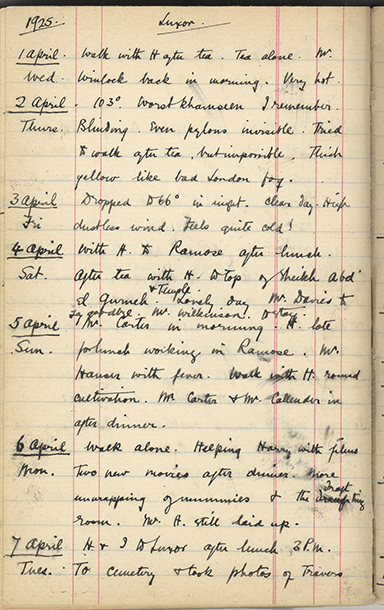 1925. Luxor.
1 April. Walk with H after tea. Tea alone. Mr.
Wed. Winlock back in morning. Very hot.
2 April. 103°. Worst khamseen I remember.
Thurs. Blinding. Even pylons invisible. Tried
to walk after tea, but impossible. Thick
yellow like bad London fog.
3 April Dropped to 66° in night. Clear day. High
Fri dustless wind. Feels quite cold!
4 April With H. to Ramose after lunch.
Sat. After tea with H. to top of Sheikh Abd'
& Temple
el Gurneh. Lovely day. Mr. Davies to
say goodbye. Mr. Wilkinson to stay.
5 April Mr. Carter in morning. H. late
Sun. for lunch working in Ramose. Mr.
Hauser with fever. Walk with H. round
cultivation. Mr Carter & Mr. Callender in
after dinner.
6 April Walk alone. Helping Harry with films
Mon. Two new movies after dinner. More
unwrapping of mummies & the Draughting
room. Mr. H. still laid up.
7 April H & I to Luxor after lunch 3 P.M.
Tues. To cemetery & took photos of Travers